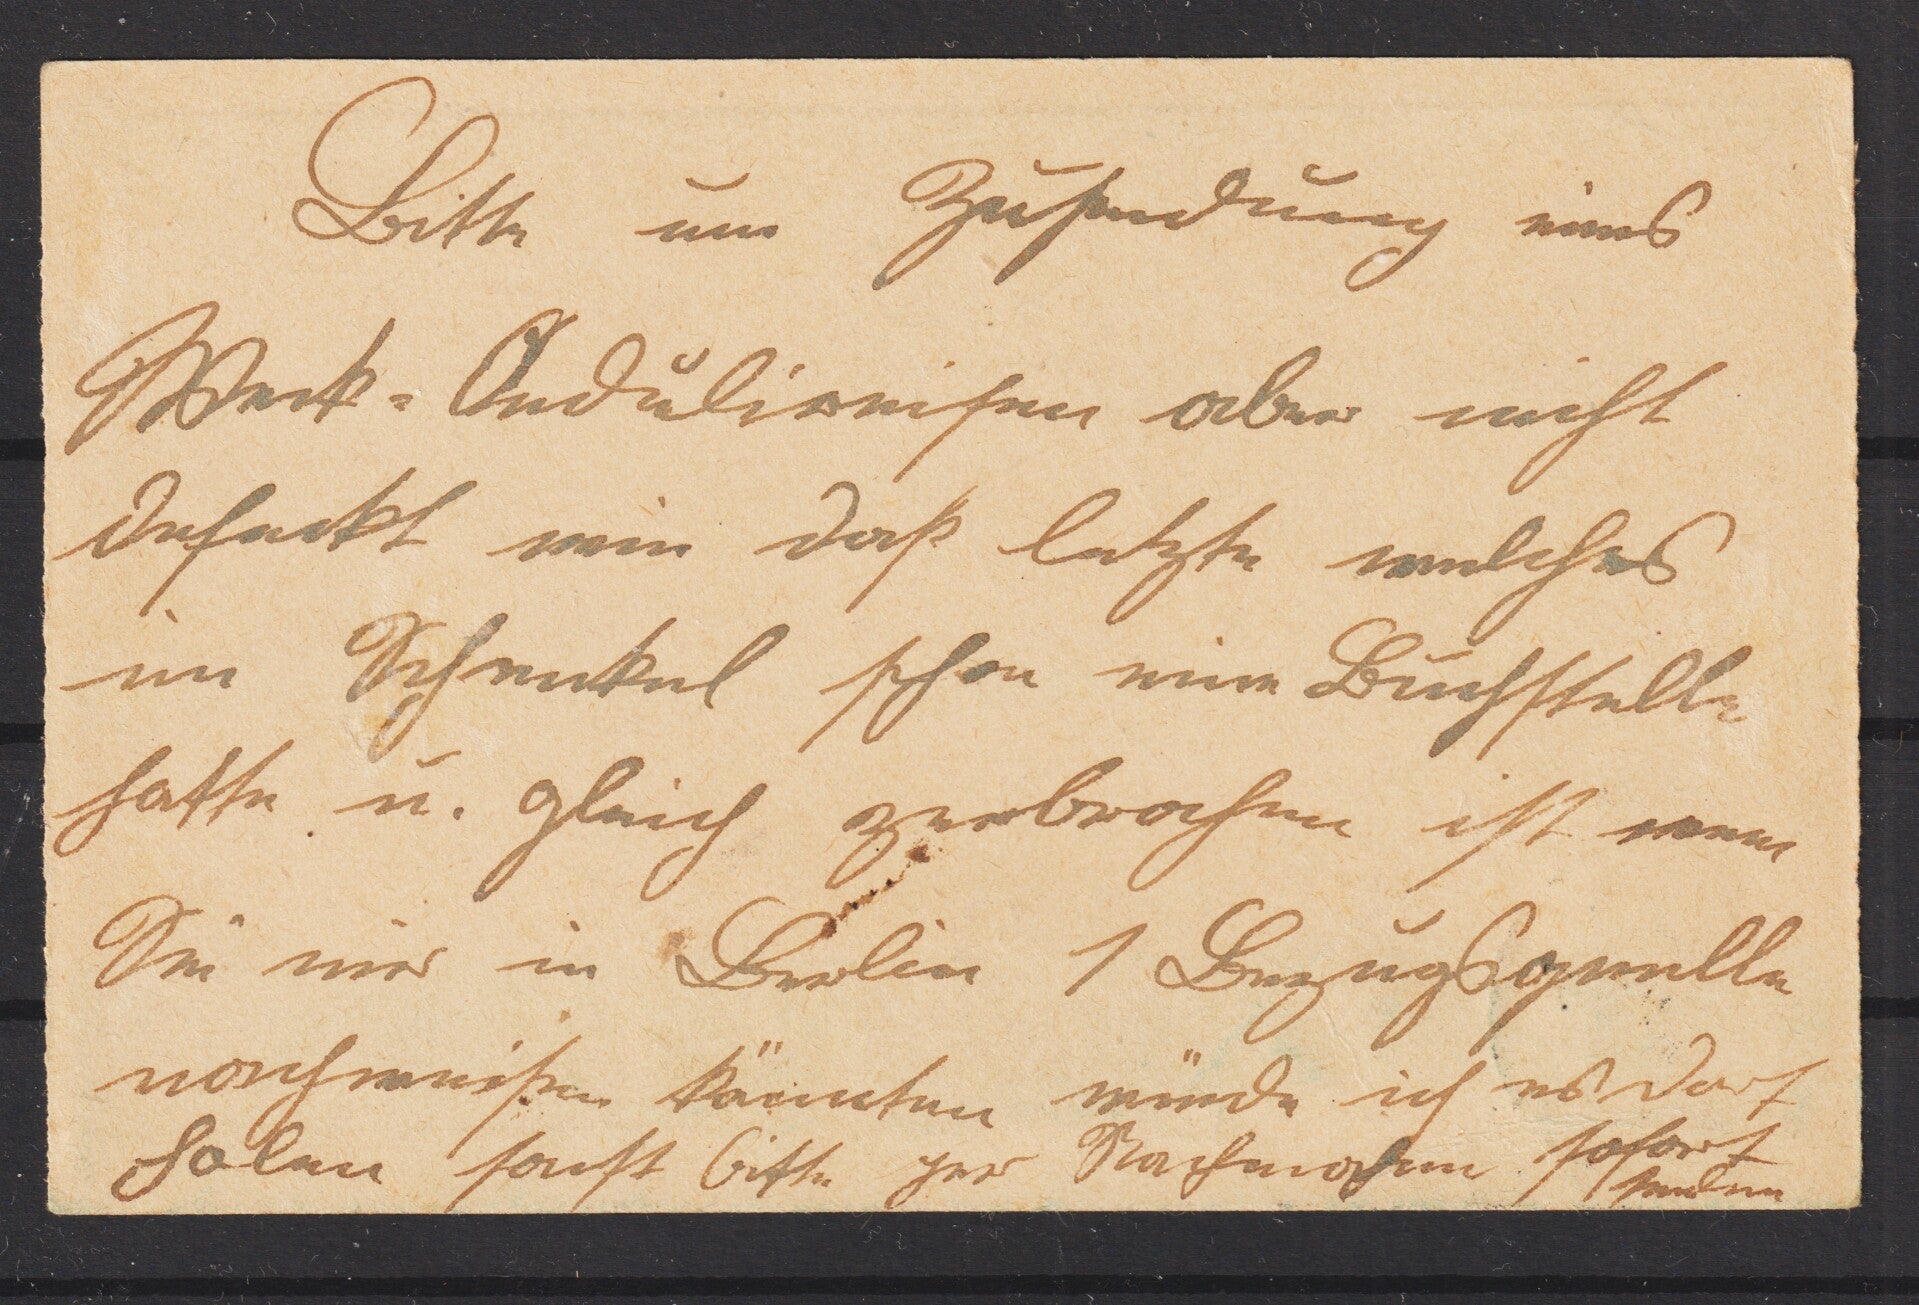 Bitte um Zusendung eines
Weck-Onduliereisen aber nicht
defeckt wie daß letzte welches
im Schenkel schon eine Buchstelle
hatte u. gleich zerbrochen ist wenn
Sie mir in Berlin 1 Bezugsquelle
nachweißen könnten würde ich es dort
holen sonst bitte per Nachnahme sofort
senden